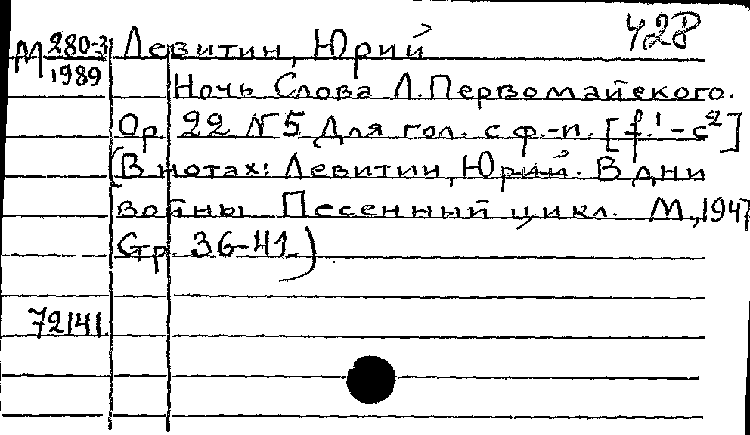 428
М 280-3 Левитин, Юрий
1989
Ночь Слова Л. Первомайского.
Ор. 22 N 5 Для гол. с ф.-п. [f¹-c²]
(В нотах: Левитин, Юрий. В дни
войны Песенный цикл. М., 1947
Стр. 36-41.)
72141